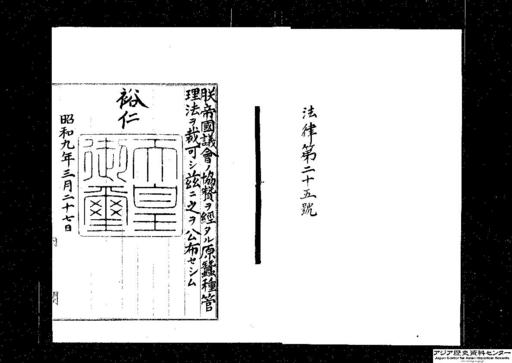 法律第二十五號
朕帝國議會ノ協贊ヲ經タル原蠶種管
理法ヲ裁可シ茲ニ之ヲ公布セシム
裕仁
天皇
御璽
昭和九年三月二十七日
アジア歴史資料センター
Japan Center for Asian Historical Records